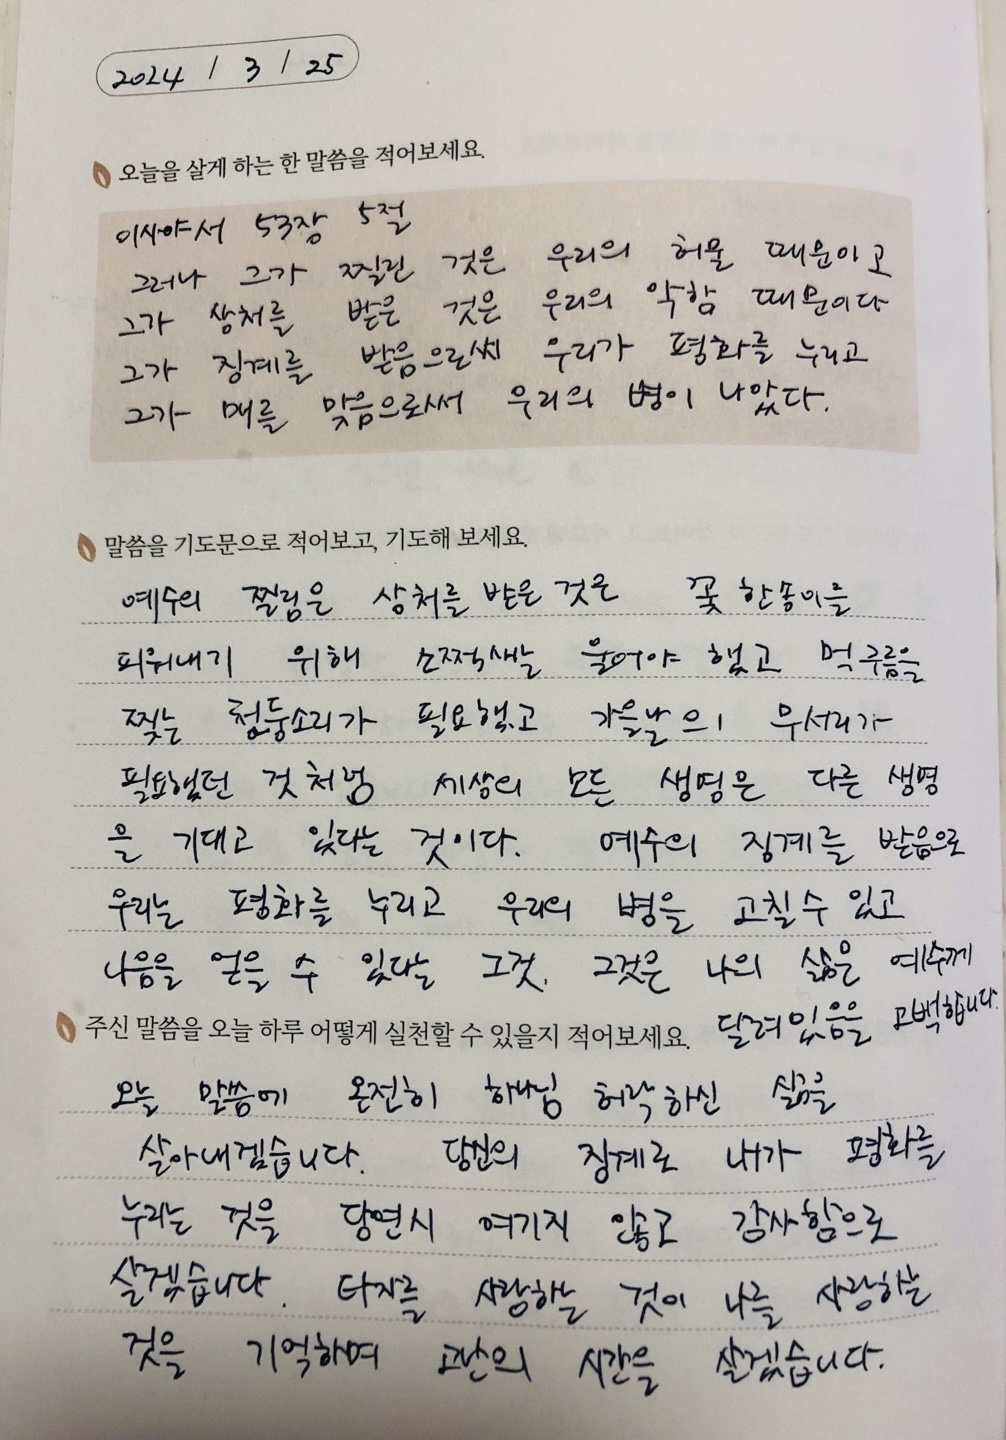 2024 / 3 / 25
오늘을 살게 하는 한 말씀을 적어보세요.
이사야서 53장 5절
그러나 그가 찔린 것은 우리의 허물 때문이고
그가 상처를 받은 것은 우리의 악함 때문이다
그가 징계를 받음으로써 우리가 평화를 누리고
그가 매를 맞음으로써 우리의 병이 나았다.
말씀을 기도문으로 적어보고, 기도해 보세요.
예수의 찔림은 상처를 받은 것은 꽃 한송이를
피워내기 위해 소쩍새는 울어야 했고 먹구름을
찢는 천둥소리가 필요했고 가을날의 무서리가
필요했던 것처럼 세상의 모든 생명은 다른 생명
을 기대고 있다는 것이다. 예수의 징계를 받음으로
우리는 평화를 누리고 우리의 병을 고칠 수 있고
나음을 얻을 수 있다는 그것. 그것은 나의 삶은 예수께
달려있음을 고백합니다.
주신 말씀을 오늘 하루 어떻게 실천할 수 있을지 적어보세요.
오늘 말씀에 온전히 하나님 허락하신 삶을
살아내겠습니다. 당신의 징계로 내가 평화를
누리는 것을 당연시 여기지 않고 감사함으로
살겠습니다. 타자를 사랑하는 것이 나를 사랑하는
것을 기억하며 고난의 시간을 살겠습니다.